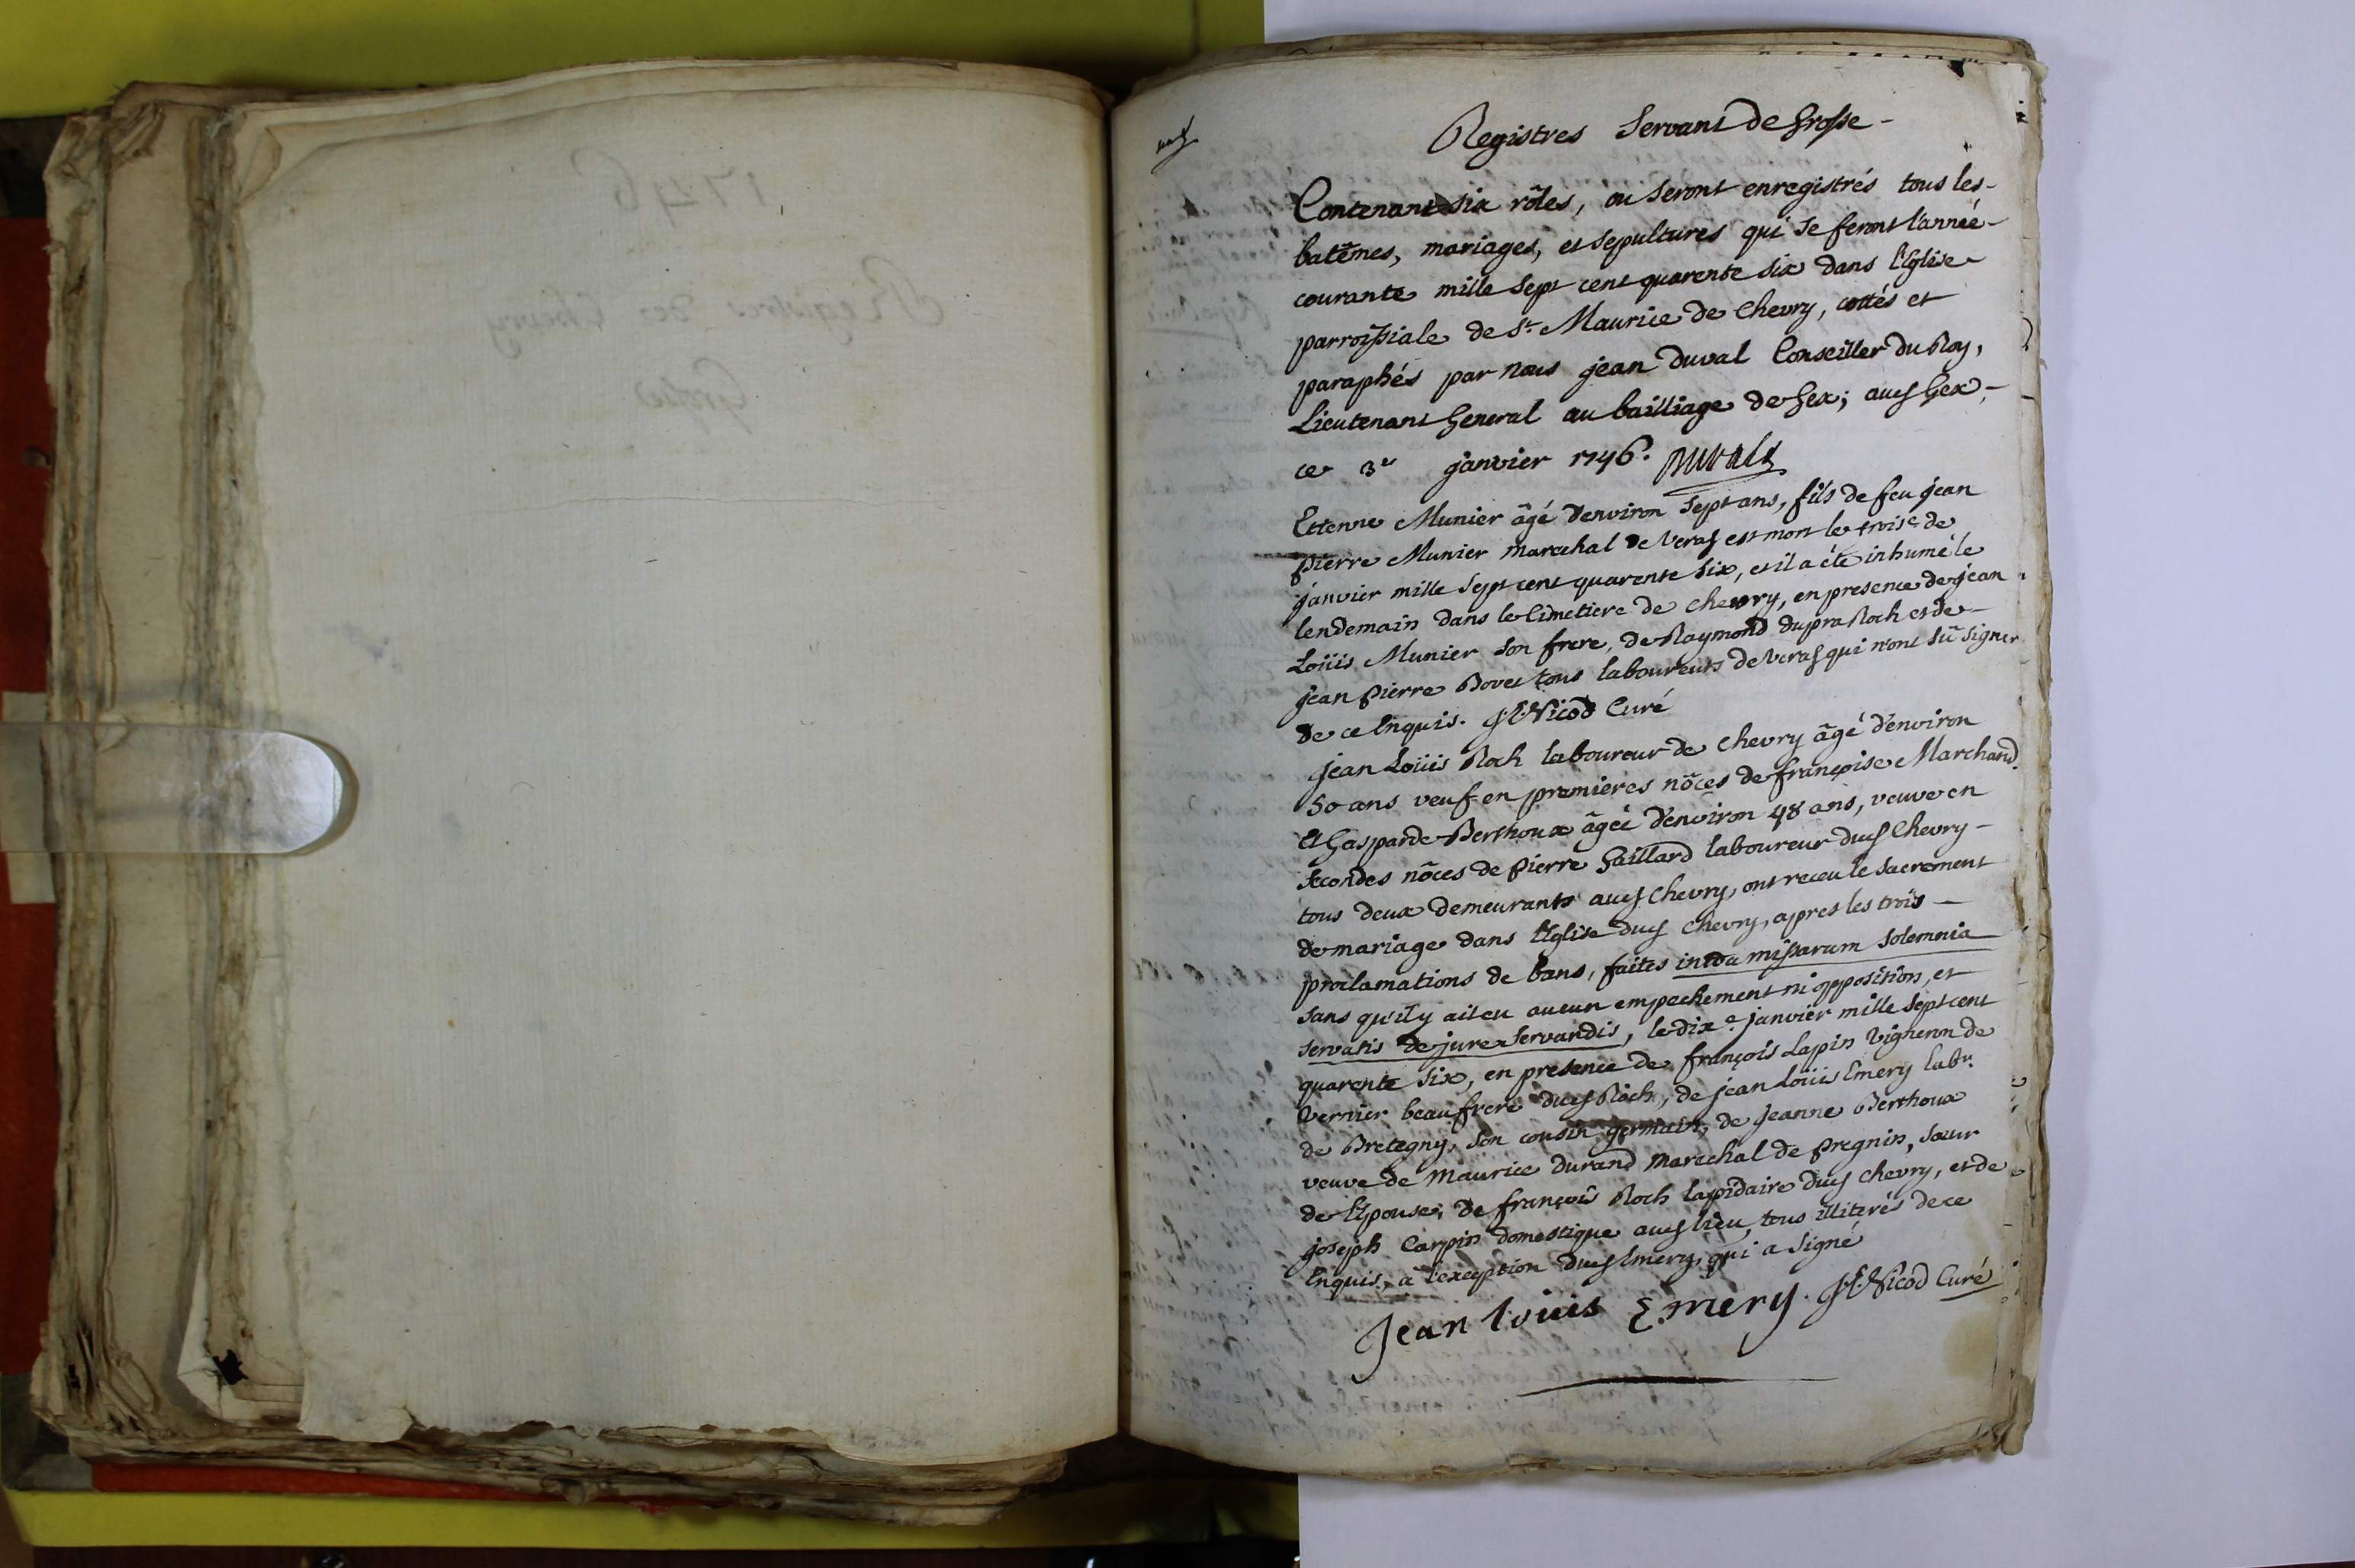 Registres Servant de Grosse -
Contenant six rôles, ou seront enregistrés tous les -
batêmes, mariages, et sepultures qui se feront l'année -
courante mille sept cent quarente six dans l'Eglise
parroissiale de St. Maurice de Chevry, cottés et
paraphés par nous jean Duval Conseiller du Roy,
Lieutenant General au bailliage de Gex; aud Gex, -
ce 3e janvier 1746. Duval
Etienne Munier âgé d'environ sept ans, fils de feu jean
pierre Munier marechal de Veraz est mort le troise de
janvier mille sept cent quarente six, et il a été inhumé le
lendemain dans le Cimetiere de chevry, en presence de jean
Loüis Munier son frere, de Raymond dupra Roch et de -
jean pierre Bovet tous laboureurs de Veraz qui n'ont sû signer
de ce Enquis. J.E. Nicod Curé
jean Loüis Roch laboureur de chevry âgé d'environ
50 ans veuf en premières nôces de françoise Marchand.
Et Gasparde Berthoux âgée d'environ 48 ans, veuve en
secondes nôces de pierre Gaillard laboureur dud Chevry -
tous deux demeurants aud Chevry, ont receu le sacrement
de mariage dans l'Eglise dud Chevry, apres les trois -
proclamations de bans, faites intra missarum solemnia
sans qu'il y ait eu aucun empechement ni opposition, et
servatis de jure servandis, le dixe janvier mille sept cent
quarente six, en presence de françois Lapin Vigneron de
Vernier beaufrere dud Roch, de jean Loüis Emery labr.
de Bretegny, son cousin germain, de jeanne Berthoux
veuve de Maurice durand marechal de pregnin, sœur
de l'Epouse; de françois Roch lapidaire dud chevry, et de
joseph Carpin domestique aud lieu, tous illiterés de ce
Enquis, à l'exception dud Emery, qui a signé
Jean louis Emery. J.E. Nicod Curé